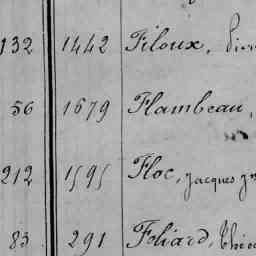 132 1442 Filoux,
56 1679 Flambeau,
212 1595 Floc, Jacques
83 291 Foliard,